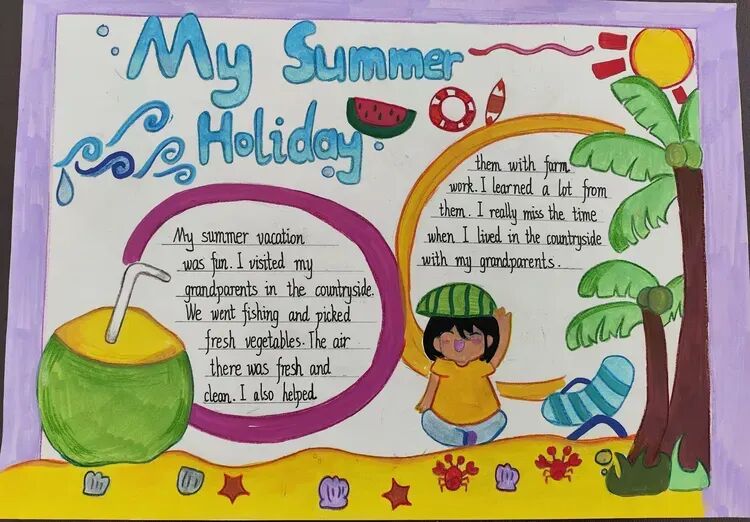 My Summer
Holiday
My summer vacation
was fun. I visited my
grandparents in the countryside.
We went fishing and picked
fresh vegetables. The air
there was fresh and
clean. I also helped
them with farm
work. I learned a lot from
them. I really miss the time
when I lived in the countryside
with my grandparents.